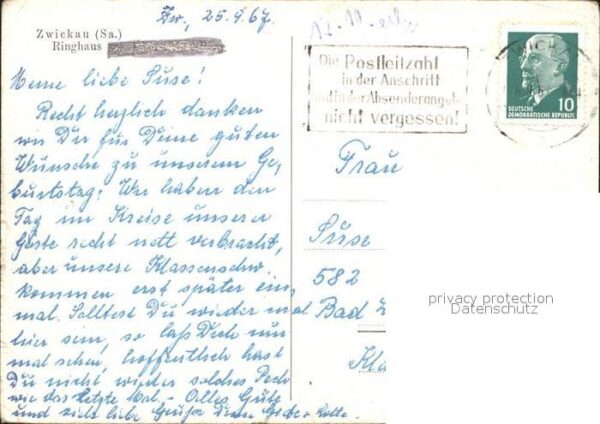 Zwickau (Sa.)
Ringhaus
25.9.67.
Meine liebe Suse!
Recht herzlich danken
wir Dir für Deine guten
Wünsche zu unserem Ge-
burtstag. Wir haben den
Tag im Kreise unserer
Gäste recht nett verbracht,
aber unsere Klassenschw.
kommen erst später ein-
mal. Solltest Du wieder mal
hier sein, so laß Dich nun
mal sehen, hoffentlich hast
Du nicht wieder solches Pech
wie das letzte Mal. - Alles Gute
und viele liebe Grüße Deine
Die Postleitzahl
in der Anschrift
und in der Absenderangabe
nicht vergessen!
DEUTSCHE
DEMOKRATISCHE REPUBLIK
10
Frau
Suse
582
Bad
privacy protection
Datenschutz